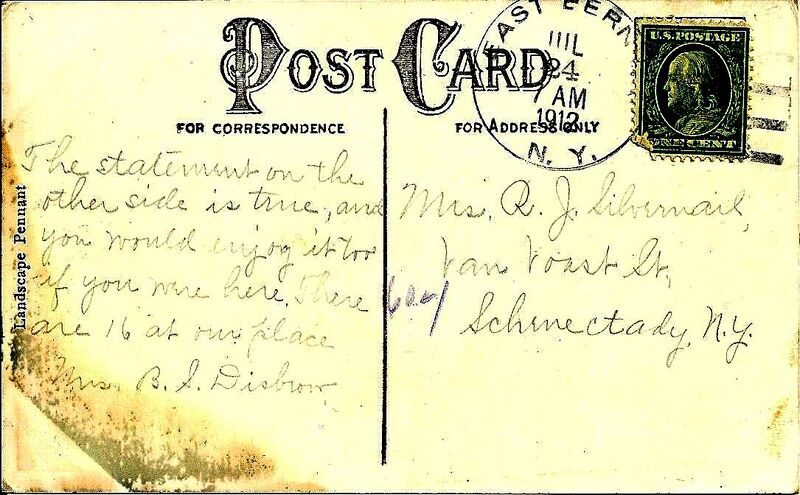 POST CARD
FOR CORRESPONDENCE
FOR ADDRESS ONLY
EAST BERN
JUL
24
7 AM
1912
N. Y.
U.S. POSTAGE
ONE CENT
Landscape Pennant
The statement on the
other side is true, and
you would enjoy it too
if you were here. There
are 16 at our place
Mrs. B. S. Disbrow
Mrs. R. J. Silvernail,
Van Voast St,
Schenectady, N.Y.